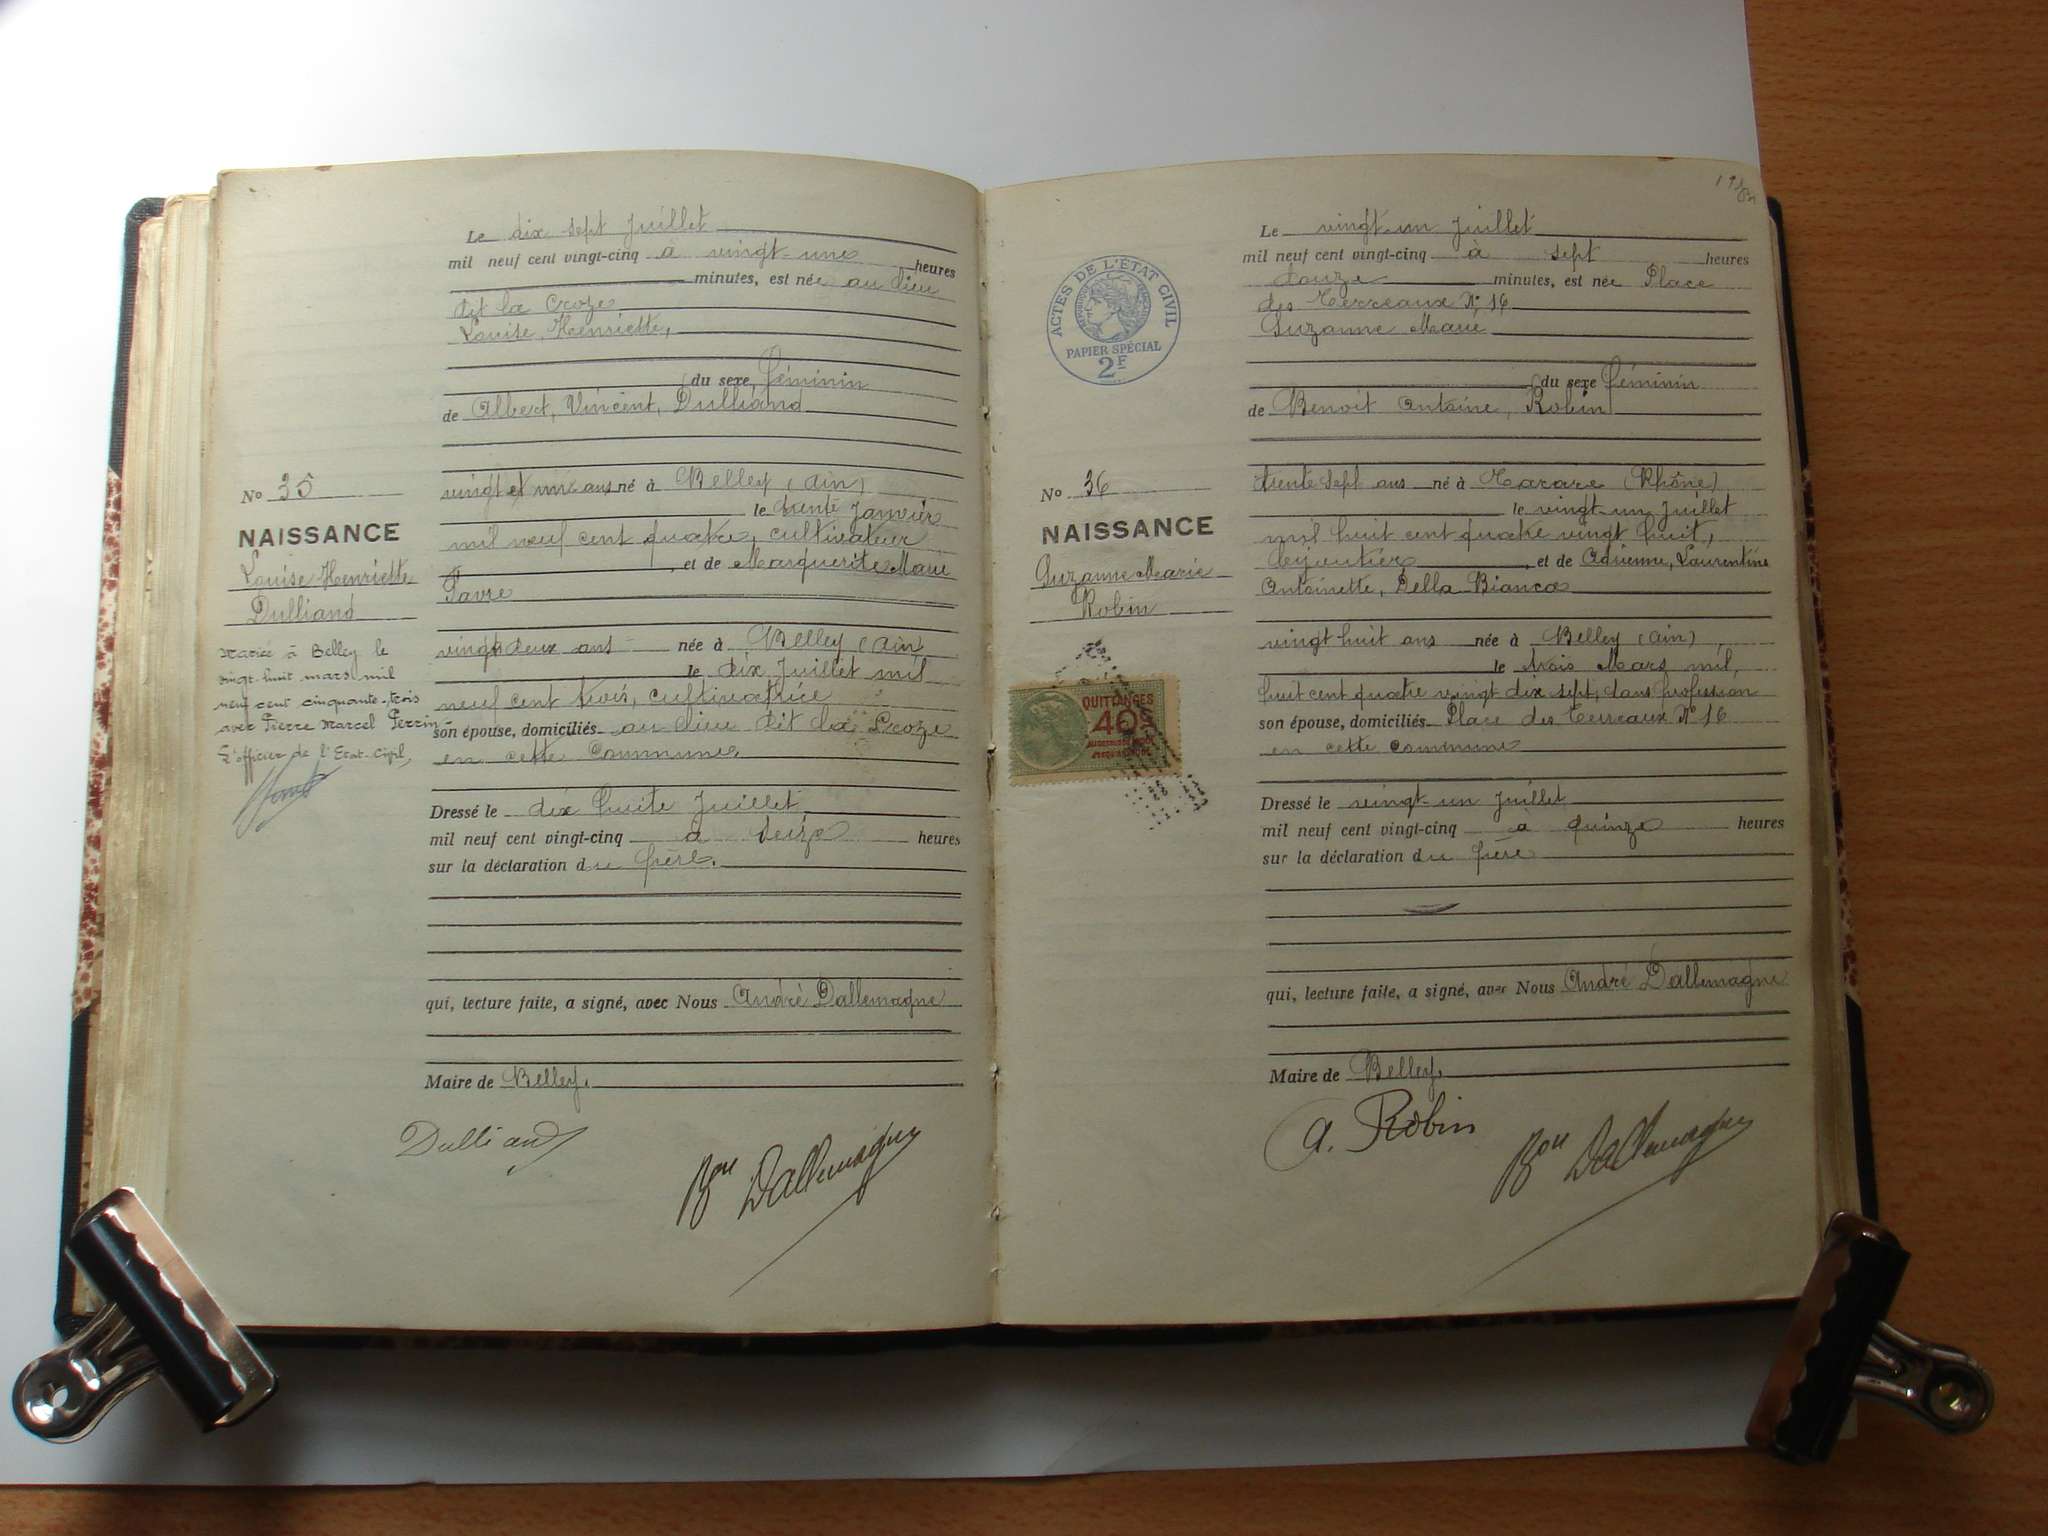 Le dix sept Juillet
mil neuf cent vingt-cinq à vingt-une heures
minutes, est née au lieu
dit la Croze
Louise, Henriette,
du sexe féminin
de Albert, Vincent, Dulliand
No 35
NAISSANCE
Louise Henriette
Dulliand
Mariée à Belley le
vingt-huit mars mil
neuf cent cinquante-trois
avec Pierre Marcel Perrin
L'officier de l'Etat-Civil,
vingt et un ans né à Belley (Ain)
le trente Janvier
mil neuf cent quatre, cultivateur
, et de Marguerite Marie
Favre
vingt deux ans née à Belley (Ain)
le dix Juillet mil
neuf cent trois, cultivatrice
son épouse, domiciliés au lieu dit la Croze
en cette commune.
Dressé le dix huite Juillet
mil neuf cent vingt-cinq à seize heures
sur la déclaration du père.
qui, lecture faite, a signé, avec Nous André Dallemagne
Maire de Belley.
Dulliand
Bon Dallemagne
Le vingt-un Juillet
mil neuf cent vingt-cinq à sept heures
douze minutes, est née Place
des Terreaux No 16
Suzanne Marie
du sexe féminin
de Benoit Antoine, Robin
ACTES DE L'ÉTAT CIVIL
PAPIER SPÉCIAL
2F
No 36
NAISSANCE
Suzanne Marie
Robin
QUITTANCES
40c
trente sept ans né à Tarare (Rhône)
le vingt-un Juillet
mil huit cent quatre vingt huit,
bijoutier, et de Adrienne, Laurentine
Antoinette, Della Bianca
vingt huit ans née à Belley (Ain)
le trois Mars mil
huit cent quatre vingt dix sept, sans profession
son épouse, domiciliés Place des Terreaux No 16
en cette commune
Dressé le vingt-un Juillet
mil neuf cent vingt-cinq à quinze heures
sur la déclaration du père
qui, lecture faite, a signé, avec Nous André Dallemagne
Maire de Belley.
A. Robin
Bon Dallemagne